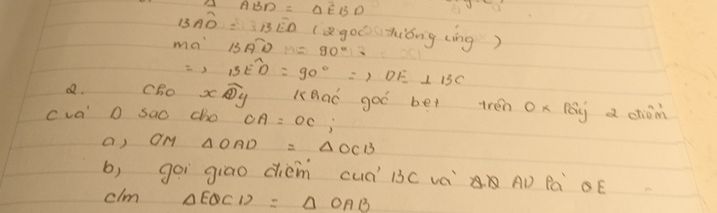 Δ ABD = ΔEBD
BÂD = BÊD (2 góc tương ứng)
mà BÂD = 90°
=> BÊD = 90° => DE ⊥ BC
2. Cho xÔy khác góc bẹt trên Ox lấy 2 điểm
của O sao cho OA = OC;
a) CM ΔOAD = ΔOCB
b) gọi giao điểm của BC và AD là E
c/m ΔEOCD = Δ OAB